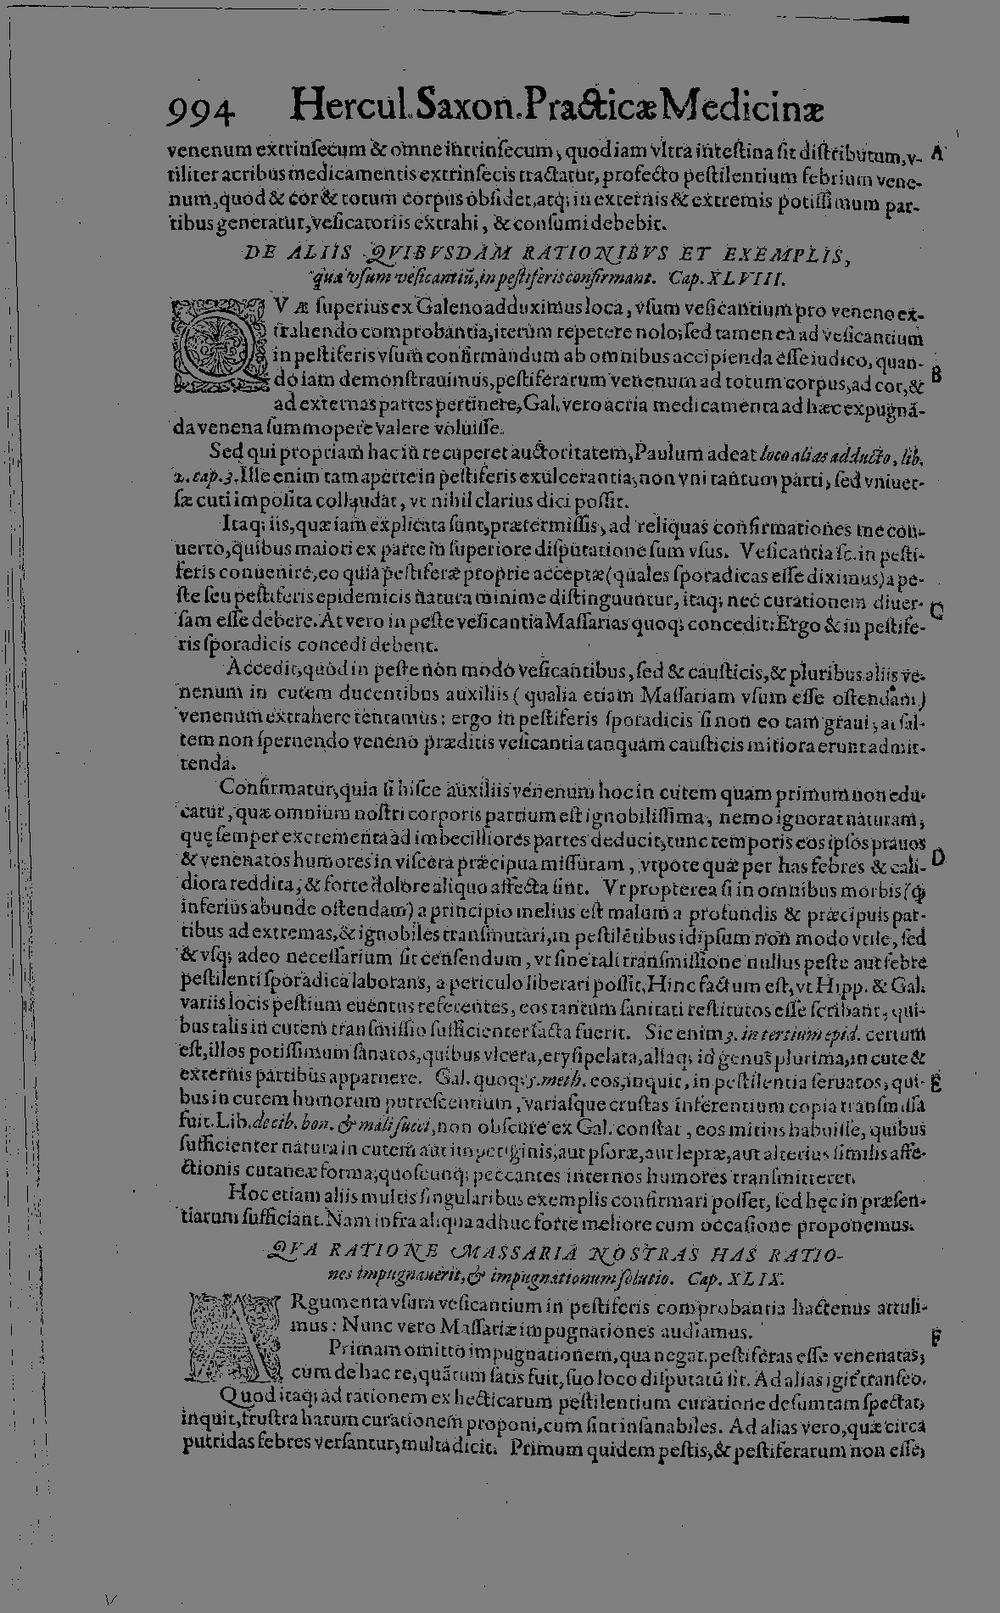 994 Hercul. Saxon. Practicæ Medicinæ
venenum extrinſecum & omne intrinſecum, quod iam vltra inteſtina ſit diſtributum, v- A
tiliter acribus medicamentis extrinſecis tractatur, profecto peſtilentium febrium vene-
num, quod & cor & totum corpus obſidet, atq; in externis & extremis potiſſimum par-
tibus generatur, veſicatoriis extrahi, & conſumi debebit.
DE ALIIS QVIBVSDAM RATIONIBVS ET EXEMPLIS,
quæ vſum veſicantiũ, in peſtiferis confirmant. Cap. XLVIII.
QVÆ ſuperius ex Galeno adduximus loca, vſum veſicantium pro veneno ex-
trahendo comprobantia, iterùm repetere nolo; ſed tamen ea ad veſicantium
in peſtiferis vſum confirmandum ab omnibus accipienda eſſe iudico, quan-
do iam demonſtrauimus, peſtiferarum venenum ad totum corpus, ad cor, & B
ad externas partes pertinere, Gal. vero acria medicamenta ad hæc expugnã-
da venena ſummopere valere voluiſſe.
Sed qui propriam hac in re cuperet auctoritatem, Paulum adeat loco alias adducto, lib.
2. cap. 3. Ille enim tam aperte in peſtiferis exulcerantia, non vni tantum parti, ſed vniuer-
ſæ cuti impoſita collaudat, vt nihil clarius dici poſſit.
Itaq; iis, quæ iam explicata ſunt, prætermiſſis, ad reliquas confirmationes me con-
uerto, quibus maiori ex parte in ſuperiore diſputatione ſum vſus. Veſicantia ſc. in peſti-
feris conuenire, eo quia peſtiferæ proprie acceptæ (quales ſporadicas eſſe diximus) a pe-
ſte ſeu peſtiferis epidemicis natura minime diſtinguuntur, itaq; nec curationem diuer- C
ſam eſſe debere. At vero in peſte veſicantia Maſſarias quoq; concedit: Ergo & in peſtife-
ris ſporadicis concedi debent.
Accedit, quòd in peſte non modo veſicantibus, ſed & cauſticis, & pluribus aliis ve-
nenum in cutem ducentibus auxiliis (qualia etiam Maſſariam vſum eſſe oſtendam)
venenum extrahere tentamus: ergo in peſtiferis ſporadicis ſi non eo tam graui, at ſal-
tem non ſpernendo veneno præditis veſicantia tanquam cauſticis mitiora erunt admit-
tenda.
Confirmatur, quia ſi hiſce auxiliis venenum hoc in cutem quam primum non edu-
catur, quæ omnium noſtri corporis partium eſt ignobiliſſima, nemo ignorat naturam,
quę ſemper excrementa ad imbecilliores partes deducit, tunc temporis eos ipſos prauos
& venenatos humores in viſcera præcipua miſſuram, vtpote quæ per has febres & cali- D
diora reddita, & forte dolore aliquo affecta ſint. Vt propterea ſi in omnibus morbis (ꝙ
inferius abunde oſtendam) a principio melius eſt malum a profundis & præcipuis par-
tibus ad extremas, & ignobiles tranſmutari, in peſtilẽtibus id ipſum non modo vtile, ſed
& vſq; adeo neceſſarium ſit cenſendum, vt ſine tali tranſmiſſione nullus peſte aut febre
peſtilenti ſporadica laborans, a periculo liberari poſſit, Hinc factum eſt, vt Hipp. & Gal.
variis locis peſtium euentus referentes, eos tantum ſanitati reſtitutos eſſe ſcribant, qui-
bus talis in cutem tranſmiſſio ſufficienter facta fuerit. Sic enim 3. in tertium epid. certum
eſt, illos potiſſimum ſanatos, quibus vlcera, eryſipelata, aliaq; id genus plurima, in cute &
externis partibus apparuere. Gal. quoq; 5. meth. eos, inquit, in peſtilentia ſeruatos, qui- E
bus in cutem humorum putreſcentium, variaſque cruſtas inferentium copia tranſmiſſa
fuit. Lib. de cib. bon. & mali ſucci, non obſcure ex Gal. conſtat, eos mitius habuiſſe, quibus
ſufficienter natura in cutem aut impetiginis, aut pſoræ, aut lepræ, aut alterius ſimilis affe-
ctionis cutaneæ forma, quoſcunq; peccantes internos humores tranſmitteret.
Hoc etiam aliis multis ſingularibus exemplis confirmari poſſet, ſed hęc in præſen-
tiarum ſufficiant. Nam infra aliqua adhuc forte meliore cum occaſione proponemus.
QVA RATIONE MASSARIA NOSTRAS HAS RATIO-
nes impugnauerit, & impugnationum ſolutio. Cap. XLIX.
ARgumenta vſum veſicantium in peſtiferis comprobantia hactenus attuli-
mus: Nunc vero Maſſariæ impugnationes audiamus. F
Primam omitto impugnationem, qua negat, peſtiferas eſſe venenatas,
cum de hac re, quãtum ſatis fuit, ſuo loco diſputatũ ſit. Ad alias igit' tranſeo.
Quod itaq; ad rationem ex hecticarum peſtilentium curatione deſumtam ſpectat,
inquit, fruſtra harum curationem proponi, cum ſint inſanabiles. Ad alias vero, quæ circa
putridas febres verſantur, multa dicit. Primum quidem peſtis, & peſtiferarum non eſſe,